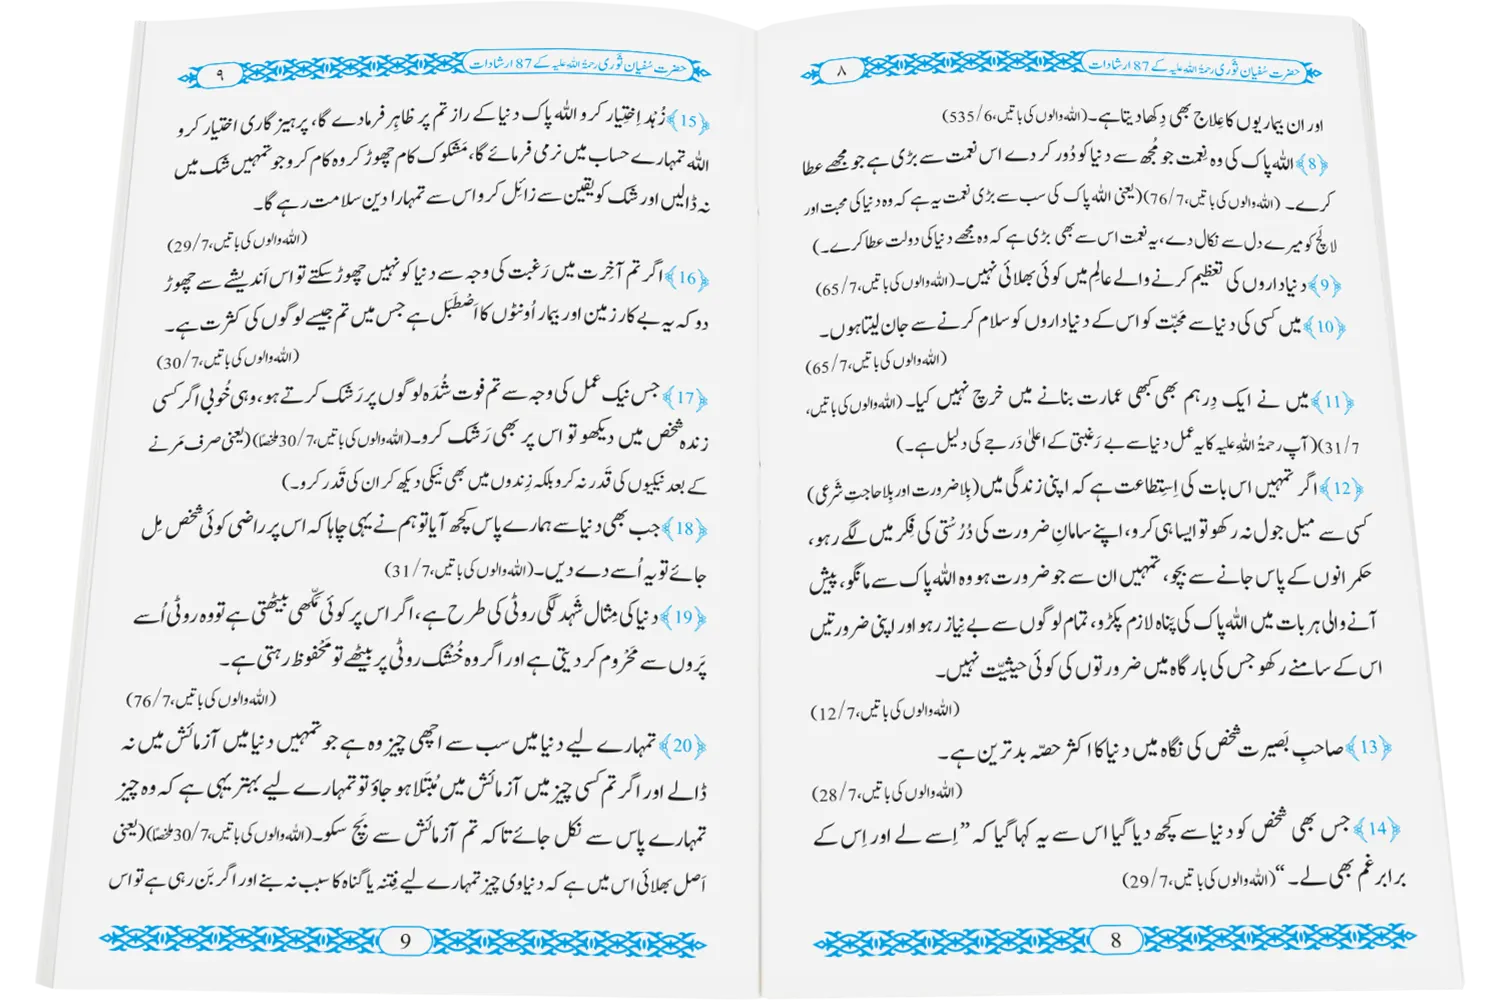 حضرت سُفیان ثَوری رحمۃُ اللہِ علیہ کے 87 ارشادات
۸
اور ان بیماریوں کا عِلاج بھی دِکھا دیتا ہے۔ (اللہ والوں کی باتیں، 6/535)
﴿8﴾ اللہ پاک کی وہ نِعمت جو مُجھ سے دنیا کو دُور کر دے اس نعمت سے بڑی ہے جو مجھے عطا
کرے۔ (اللہ والوں کی باتیں، 7/76) (یعنی اللہ پاک کی سب سے بڑی نعمت یہ ہے کہ وہ دنیا کی محبت اور
لالچ کو میرے دل سے نکال دے، یہ نعمت اس سے بھی بڑی ہے کہ وہ مجھے دنیا کی دولت عطا کرے۔)
﴿9﴾ دنیاداروں کی تعظیم کرنے والے عالِم میں کوئی بھلائی نہیں۔ (اللہ والوں کی باتیں، 7/65)
﴿10﴾ میں کسی کی دنیا سے مَحبّت کو اس کے دنیاداروں کو سلام کرنے سے جان لیتا ہوں۔
(اللہ والوں کی باتیں، 7/65)
﴿11﴾ میں نے ایک دِرہم بھی کبھی عمارت بنانے میں خرچ نہیں کیا۔ (اللہ والوں کی باتیں،
7/31) (آپ رحمۃُ اللہِ علیہ کا یہ عمل دنیا سے بے رَغبتی کے اعلیٰ دَرجے کی دلیل ہے۔)
﴿12﴾ اگر تمہیں اس بات کی اِستِطاعت ہے کہ اپنی زندگی میں (بِلا ضرورت اور بِلا حاجتِ شَرعی)
کسی سے میل جول نہ رکھو تو ایسا ہی کرو، اپنے سامانِ ضرورت کی دُرُستی کی فِکر میں لگے رہو،
حکمرانوں کے پاس جانے سے بچو، تمہیں ان سے جو ضرورت ہو وہ اللہ پاک سے مانگو، پیش
آنے والی ہر بات میں اللہ پاک کی پناہ لازم پکڑو، تمام لوگوں سے بے نِیاز رہو اور اپنی ضرورتیں
اس کے سامنے رکھو جس کی بارگاہ میں ضرورتوں کی کوئی حیثیّت نہیں۔
(اللہ والوں کی باتیں، 7/12)
﴿13﴾ صاحبِ بَصیرت شخص کی نگاہ میں دنیا کا اکثر حصّہ بدترین ہے۔
(اللہ والوں کی باتیں، 7/28)
﴿14﴾ جس بھی شخص کو دنیا سے کچھ دیا گیا اس سے یہ کہا گیا کہ ”اِسے لے اور اِس کے
برابر غم بھی لے۔“ (اللہ والوں کی باتیں، 7/29)
8
حضرت سُفیان ثَوری رحمۃُ اللہِ علیہ کے 87 ارشادات
۹
﴿15﴾ زُہد اِختِیار کرو اللہ پاک دنیا کے راز تم پر ظاہِر فرما دے گا، پرہیزگاری اختیار کرو
اللہ تمہارے حساب میں نرمی فرمائے گا، مَشکوک کام چھوڑ کر وہ کام کرو جو تمہیں شک میں
نہ ڈالیں اور شک کو یقین سے زائِل کرو اس سے تمہارا دین سلامت رہے گا۔
(اللہ والوں کی باتیں، 7/29)
﴿16﴾ اگر تم آخِرت میں رَغبت کی وجہ سے دنیا کو نہیں چھوڑ سکتے تو اس اَندیشے سے چھوڑ
دو کہ یہ بے کار زمین اور بیمار اُونٹوں کا اَصْطَبَل ہے جس میں تم جیسے لوگوں کی کثرت ہے۔
(اللہ والوں کی باتیں، 7/30)
﴿17﴾ جس نیک عمل کی وجہ سے تم فوت شُدَہ لوگوں پر رَشک کرتے ہو، وہی خُوبی اگر کسی
زندہ شخص میں دیکھو تو اس پر بھی رَشک کرو۔ (اللہ والوں کی باتیں، 7/30 ملخصًا) (یعنی صرف مَرنے
کے بعد نیکیوں کی قَدر نہ کرو بلکہ زِندوں میں بھی نیکی دیکھ کر ان کی قَدر کرو۔)
﴿18﴾ جب بھی دنیا سے ہمارے پاس کچھ آیا تو ہم نے یہی چاہا کہ اس پر راضی کوئی شخص مِل
جائے تو یہ اُسے دے دیں۔ (اللہ والوں کی باتیں، 7/31)
﴿19﴾ دنیا کی مِثال شَہد لگی روٹی کی طرح ہے، اگر اس پر کوئی مکّھی بیٹھتی ہے تو وہ روٹی اُسے
پَروں سے مَحْروم کر دیتی ہے اور اگر وہ خُشک روٹی پر بیٹھے تو مَحْفوظ رہتی ہے۔
(اللہ والوں کی باتیں، 7/76)
﴿20﴾ تمہارے لیے دنیا میں سب سے اچھی چیز وہ ہے جو تمہیں دنیا میں آزمائش میں نہ
ڈالے اور اگر تم کسی چیز میں آزمائش میں مُبتَلا ہو جاؤ تو تمہارے لیے بہتر یہی ہے کہ وہ چیز
تمہارے پاس سے نکل جائے تاکہ تم آزمائش سے بَچ سکو۔ (اللہ والوں کی باتیں، 7/30 ملخصًا) (یعنی
اَصل بھلائی اس میں ہے کہ دنیاوی چیز تمہارے لیے فِتنہ یا گناہ کا سبب نہ بنے اور اگر بَن رہی ہے تو اس
9